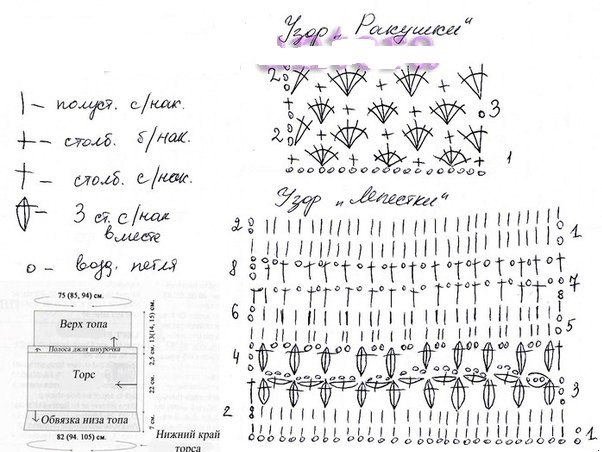 Узор „Ракушки"
2
3
2
1
| — полуст. с/нак.
+ — столб. б/нак.
† — столб. с/нак.
— 3 ст. с/нак
вместе
о — возд. петля
Узор „Лепестки"
2
1
8
7
6
5
4
3
2
1
75 (85, 94) см.
Верх топа
Полоса для шнурочка
Торс
Обвязка низа топа
82 (94. 105) см.
13(14, 15) см.
2,5 см.
22 см.
7 см.
Нижний край
торса